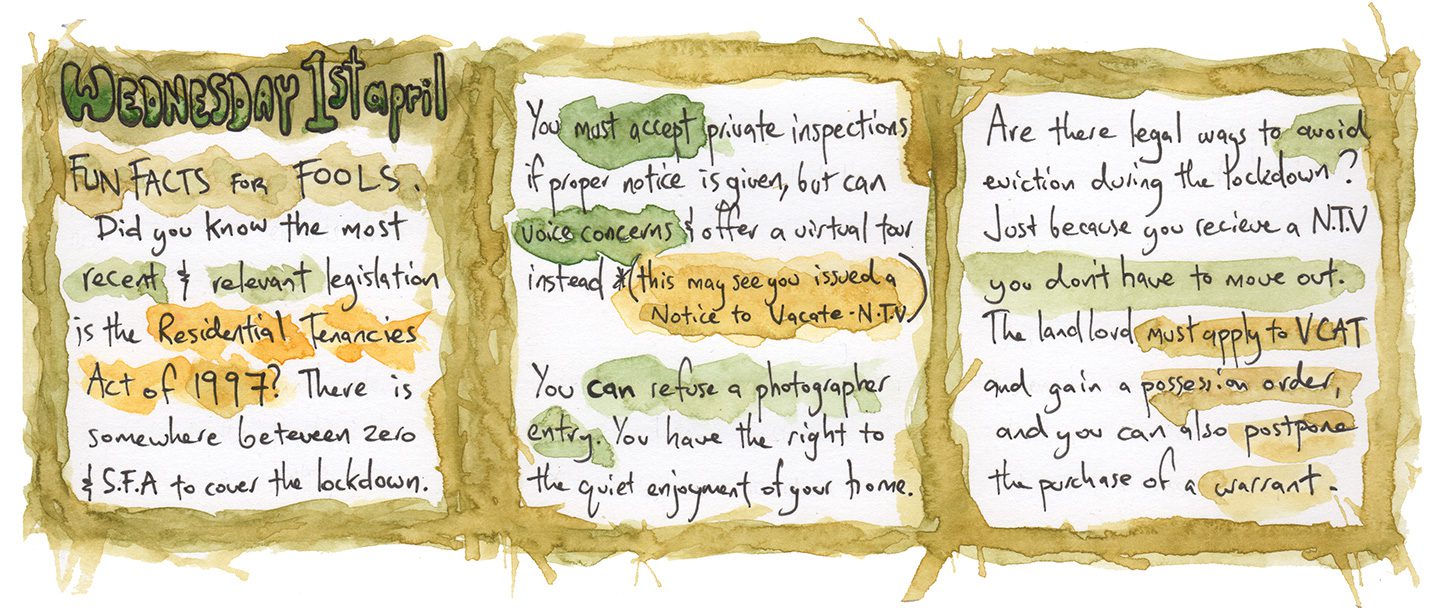 WEDNESDAY 1st april
FUN FACTS FOR FOOLS.
Did you know the most
recent & relevant legislation
is the Residential Tenancies
Act of 1997? There is
somewhere beteveen zero
& S.F.A to cover the lockdown.
You must accept private inspections
if proper notice is given, but can
voice concerns & offer a virtual tour
instead *(this may see you issued a
Notice to Vacate - N.T.V.)
You can refuse a photographer
entry. You have the right to
the quiet enjoyment of your home.
Are there legal ways to avoid
eviction during the lockdown?
Just because you recieve a N.T.V
you don't have to move out.
The landlord must apply to VCAT
and gain a possession order,
and you can also postpone
the purchase of a warrant.